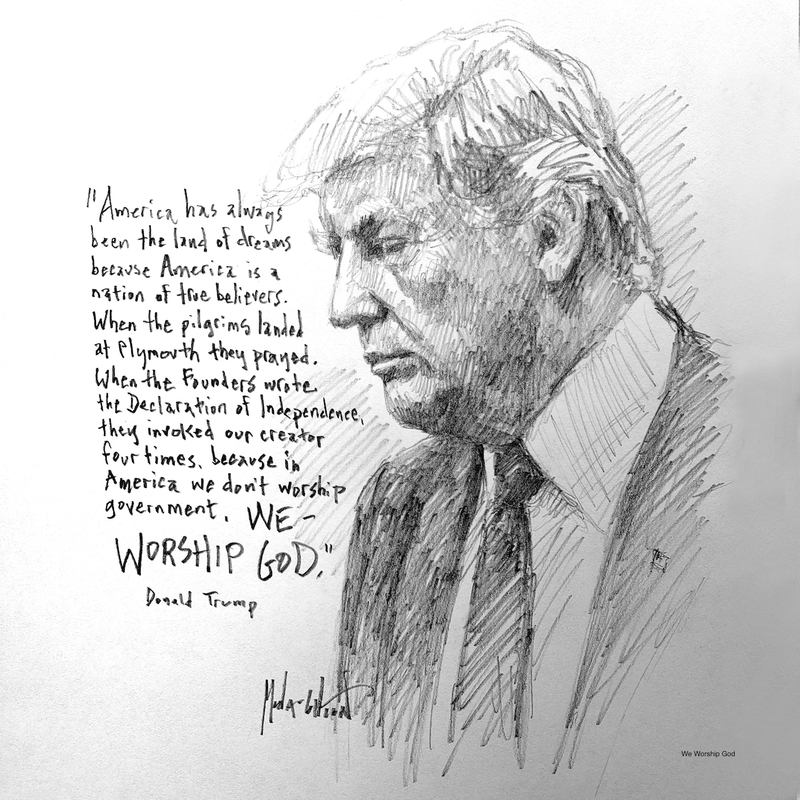 "America has always
been the land of dreams
because America is a
nation of true believers.
When the pilgrims landed
at Plymouth they prayed.
When the Founders wrote
the Declaration of Independence,
they invoked our creator
four times. because in
America we don't worship
government. WE-
WORSHIP GOD."
Donald Trump
We Worship God